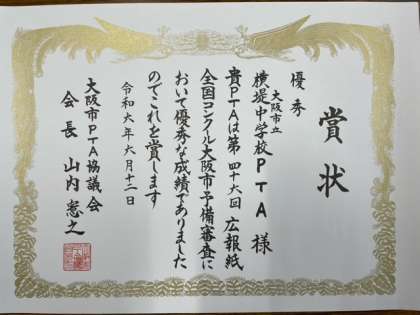 賞状
優秀
大阪市立
横堤中学校PTA様
貴PTAは第四十六回広報紙
全国コンクール大阪市予備審査に
おいて優秀な成績でありました
のでこれを賞します
令和六年六月十二日
大阪市PTA協議会
会長 山内憲之